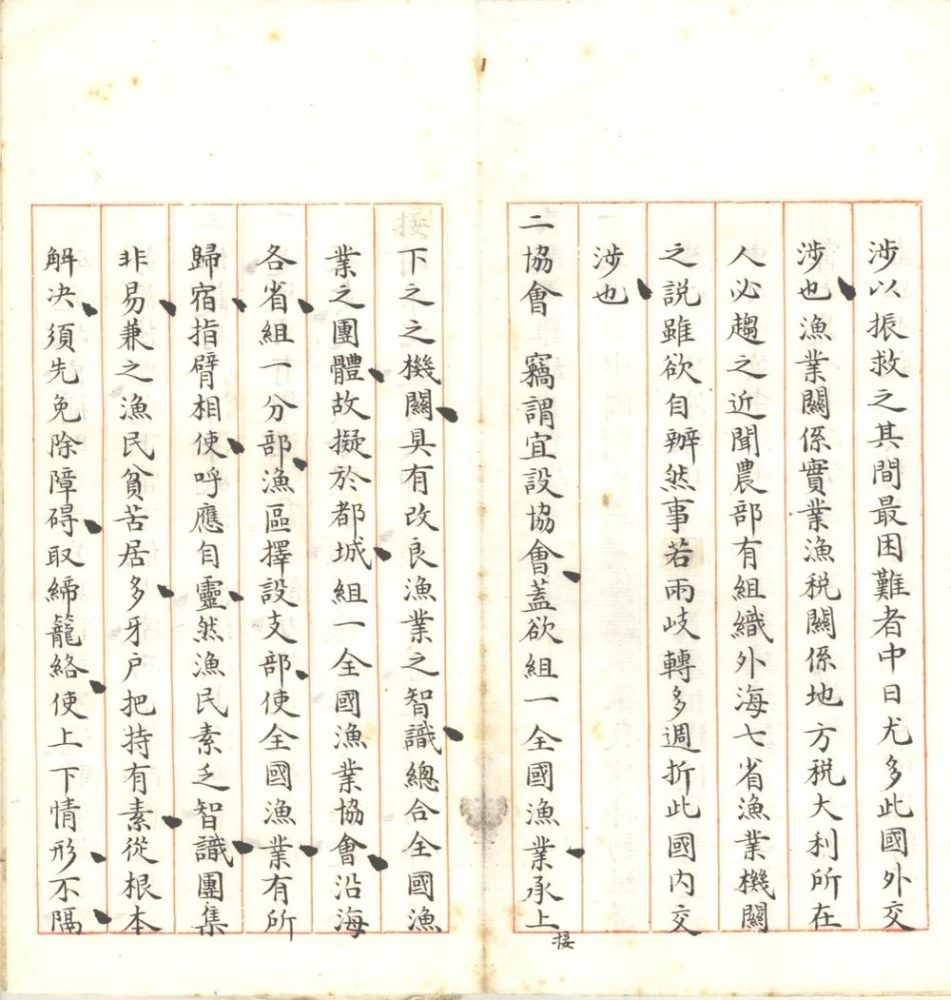 涉以振救之其間最困難者中日尤多此國外交
涉也漁業關係實業漁税關係地方税大利所在
人必趨之近聞農部有組織外海七省漁業機關
之説雖欲自辦然事若兩歧轉多週折此國内交
涉也
二協會 竊謂宜設協會蓋欲組一全國漁業承上
接
接
下之之機關具有改良漁業之智識總合全國漁
業之團體故擬於都城組一全國漁業協會沿海
各省組一分部漁區擇設支部使全國漁業有所
歸宿指臂相使呼應自靈然漁民素乏智識團集
非易兼之漁民貧苦居多牙户把持有素從根本
解决須先免除障碍取締籠絡使上下情形不隔